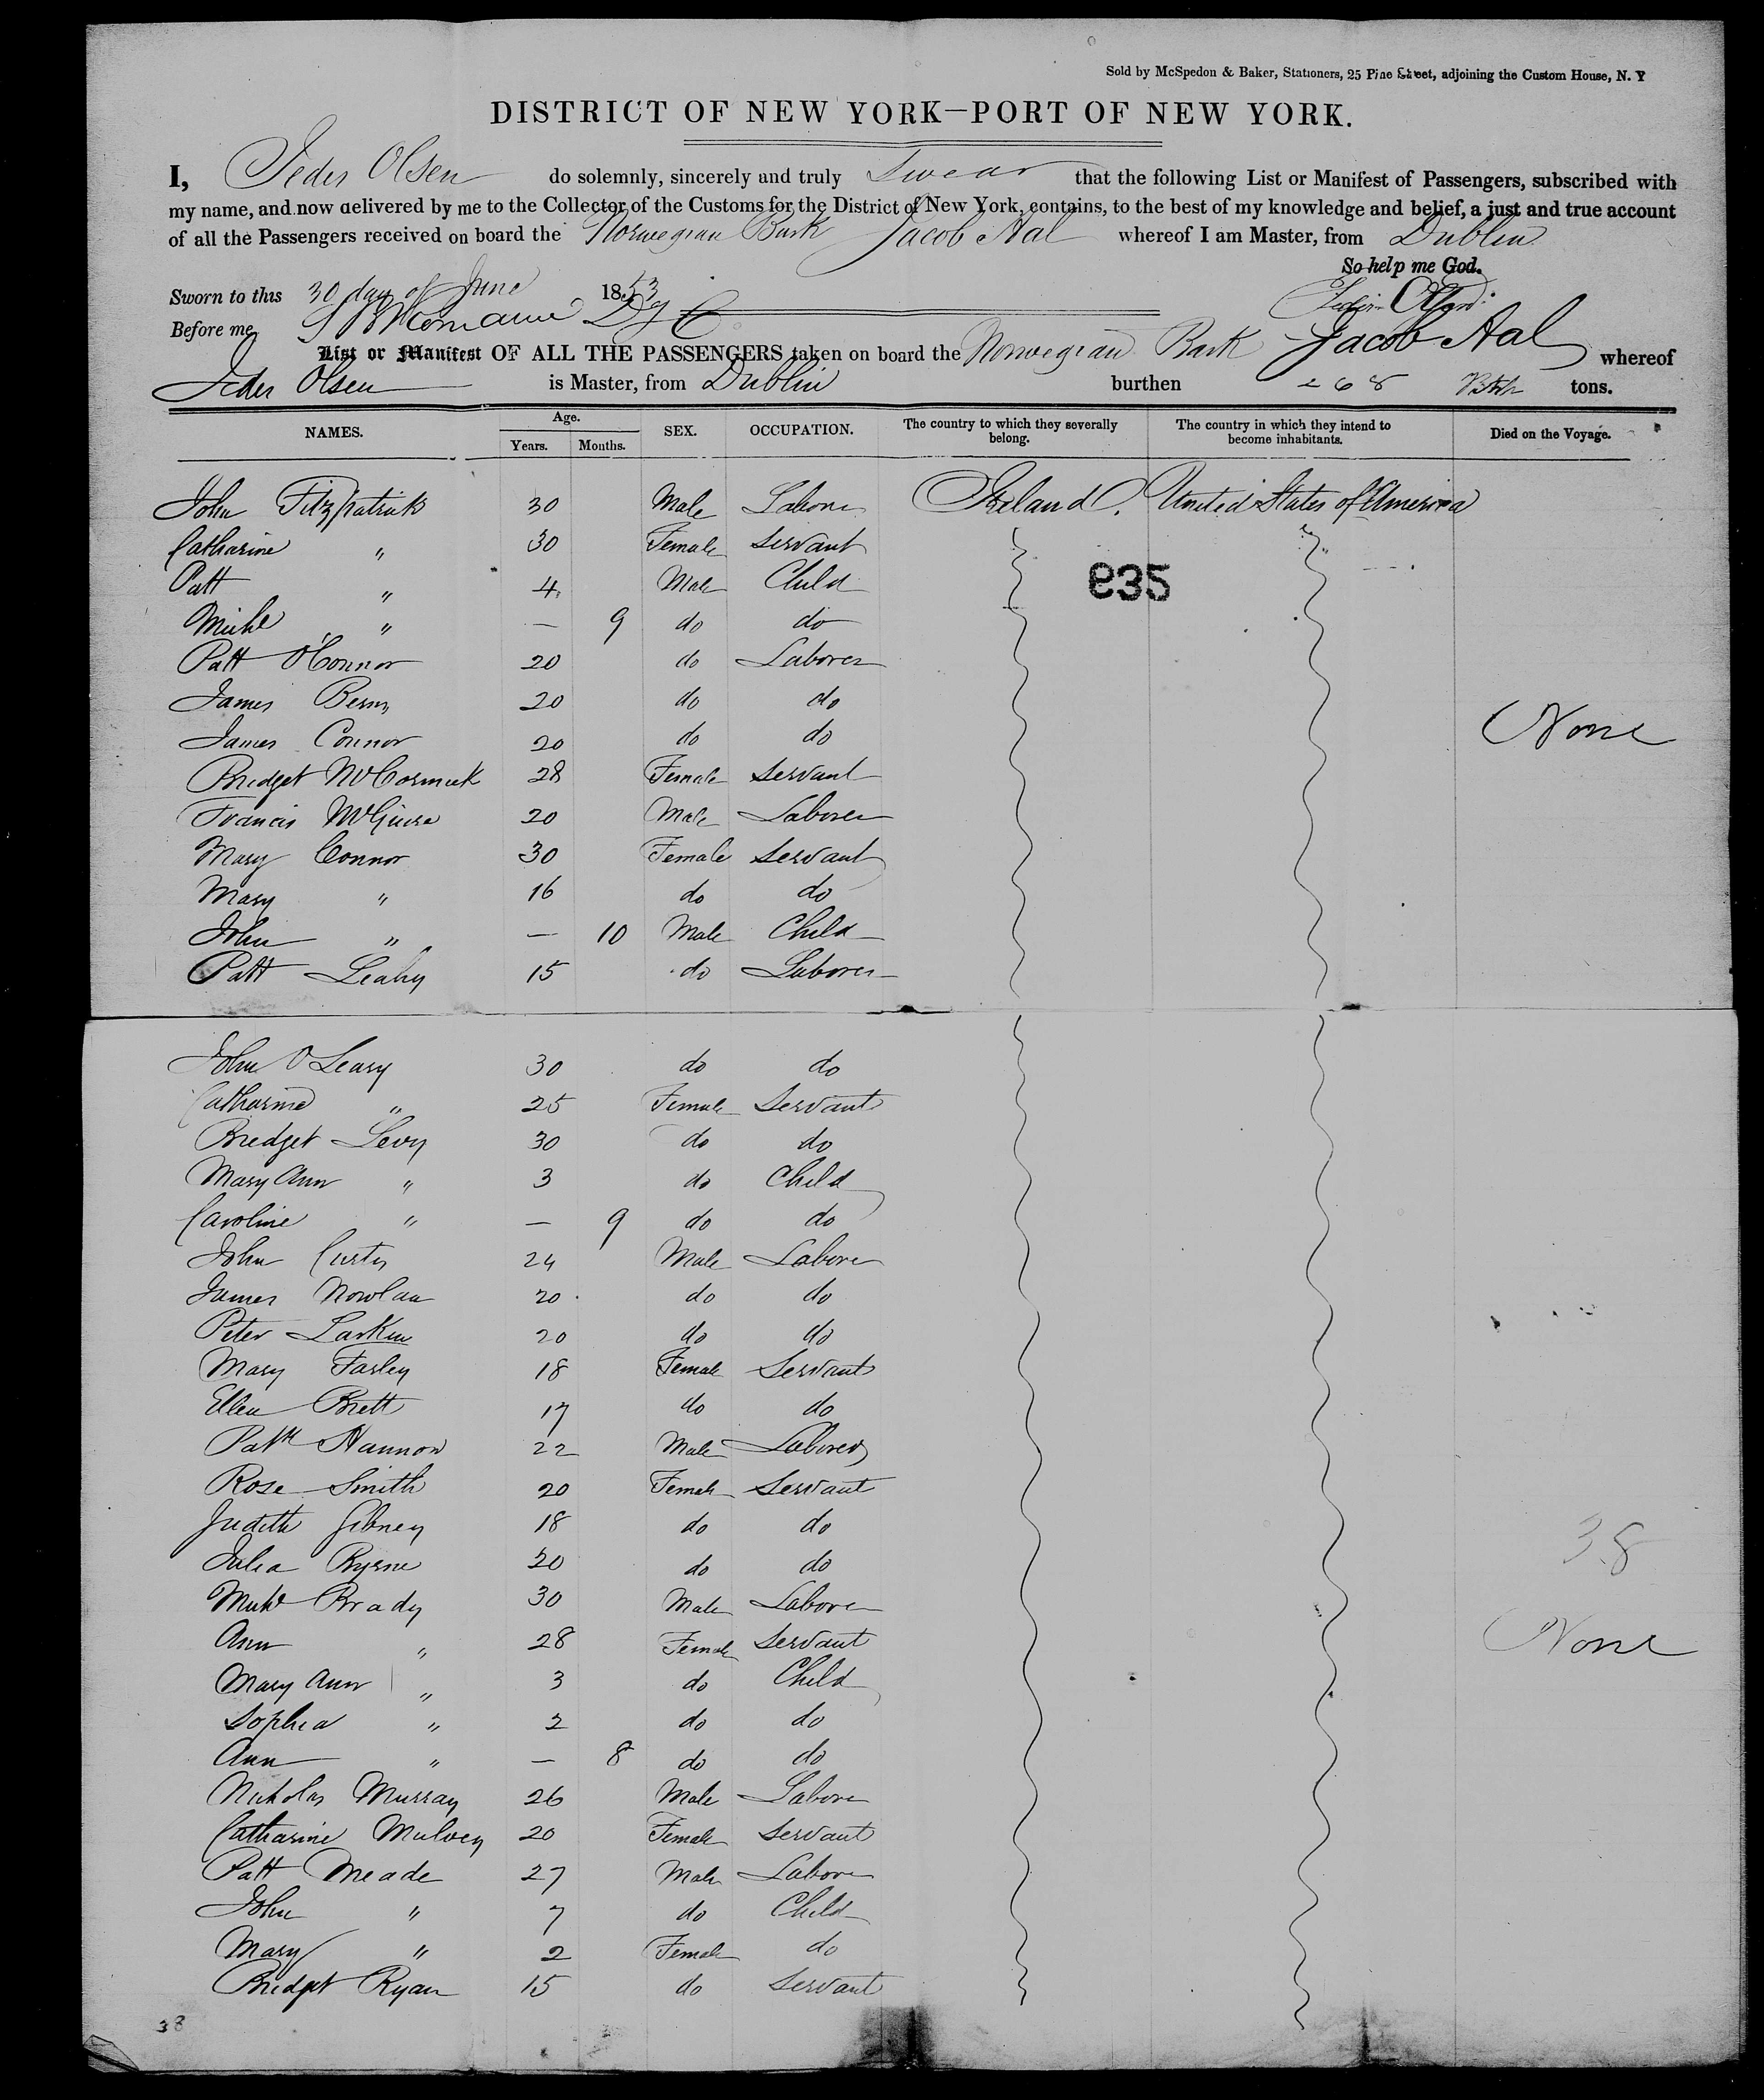 Sold by McSpedon & Baker, Stationers, 25 Pine Street, adjoining the Custom House, N. Y
DISTRICT OF NEW YORK—PORT OF NEW YORK.
I, Peder Olsen do solemnly, sincerely and truly Swear that the following List or Manifest of Passengers, subscribed with
my name, and now delivered by me to the Collector of the Customs for the District of New York, contains, to the best of my knowledge and belief, a just and true account
of all the Passengers received on board the Norwegian Bark Jacob Aal whereof I am Master, from Dublin
So help me God.
Sworn to this 30 day of June 1853
Peder Olsen
Before me
List or Manifest OF ALL THE PASSENGERS taken on board the Norwegian Bark Jacob Aal whereof
Peder Olsen is Master, from Dublin burthen 268 tons.
NAMES. Age. Years. Months. SEX. OCCUPATION. The country to which they severally belong. The country in which they intend to become inhabitants. Died on the Voyage.
John Fitzpatrick 30 Male Laborer Ireland. United States of America
Catharine " 30 Female Servant
935
Patt " 4 Male Child
Michl " — 9 do do
Patt O'Connor 20 do Laborer
James Berns 20 do do
None
James Connor 20 do do
Bridget McCormick 28 Female Servant
Francis McGuire 20 Male Laborer
Mary Connor 30 Female Servant
Mary " 16 do do
John " — 10 Male Child
Patt Leahy 15 do Laborer
John O Leary 30 do do
Catharine " 25 Female Servant
Bridget Levy 30 do do
Mary Ann " 3 do Child
Caroline " — 9 do do
John Curtis 24 Male Labore
James Nowlan 20 do do
Peter Larkin 20 do do
Mary Farley 18 Female Servant
Ellen Brett 17 do do
Patk Hannon 22 Male Laborer
Rose Smith 20 Female Servant
Judith Gibney 18 do do
38
Julia Byrne 20 do do
Michl Brady 30 Male Labore
Ann " 28 Female Servant
None
Mary Ann " 3 do Child
Sophia " 2 do do
Ann " — 8 do do
Nicholas Murray 26 Male Labore
Catharine Mulvey 20 Female Servant
Patt Meade 27 Male Labore
John " 7 do Child
Mary " 2 Female do
Bridget Ryan 15 do Servant
38